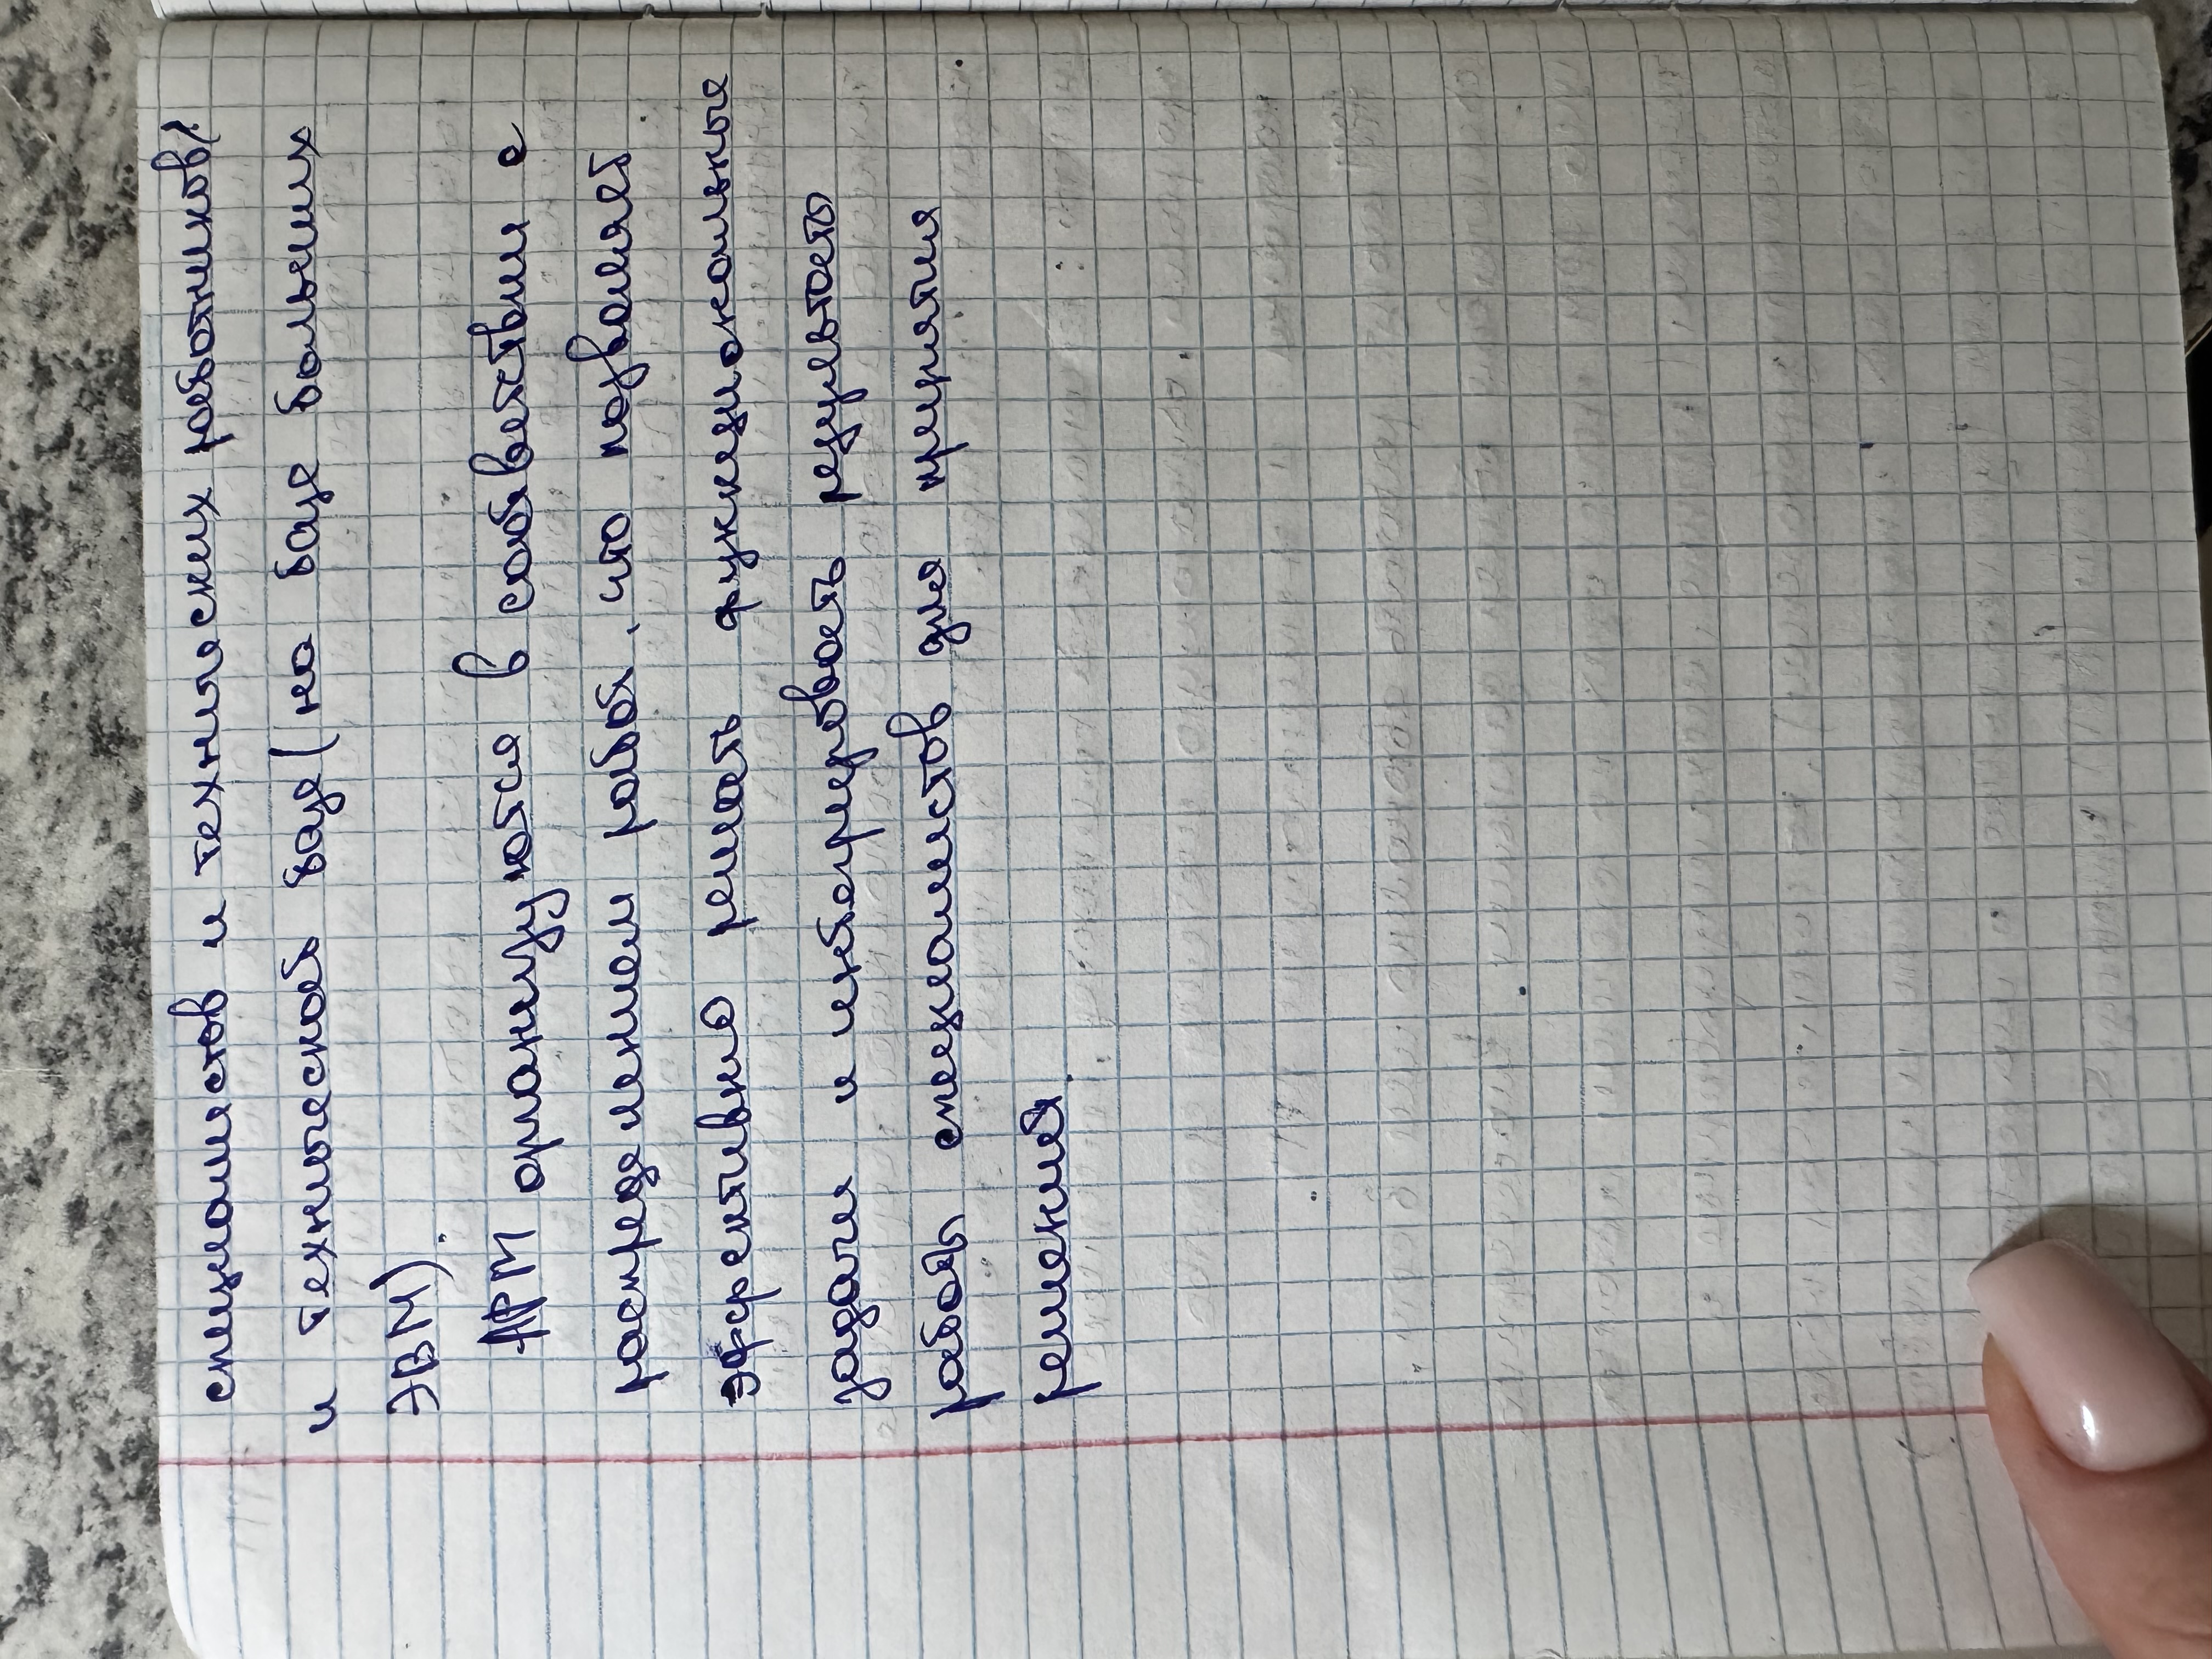 специалистов и технических работников)
и технической базе (на базе больших
ЭВМ).
АРМ организуются в соответствии с
распределением работ, что позволяет
эффективно решать функциональные
задачи и интегрировать результаты
работы специалистов для принятия
решений.